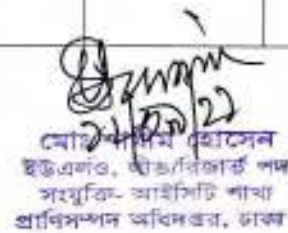 ২১/০৯/২২
মোঃ শামীম হোসেন
ইউএলও, লীভ/রিজার্ভ পদ
সংযুক্তি- আইসিটি শাখা
প্রাণিসম্পদ অধিদপ্তর, ঢাকা